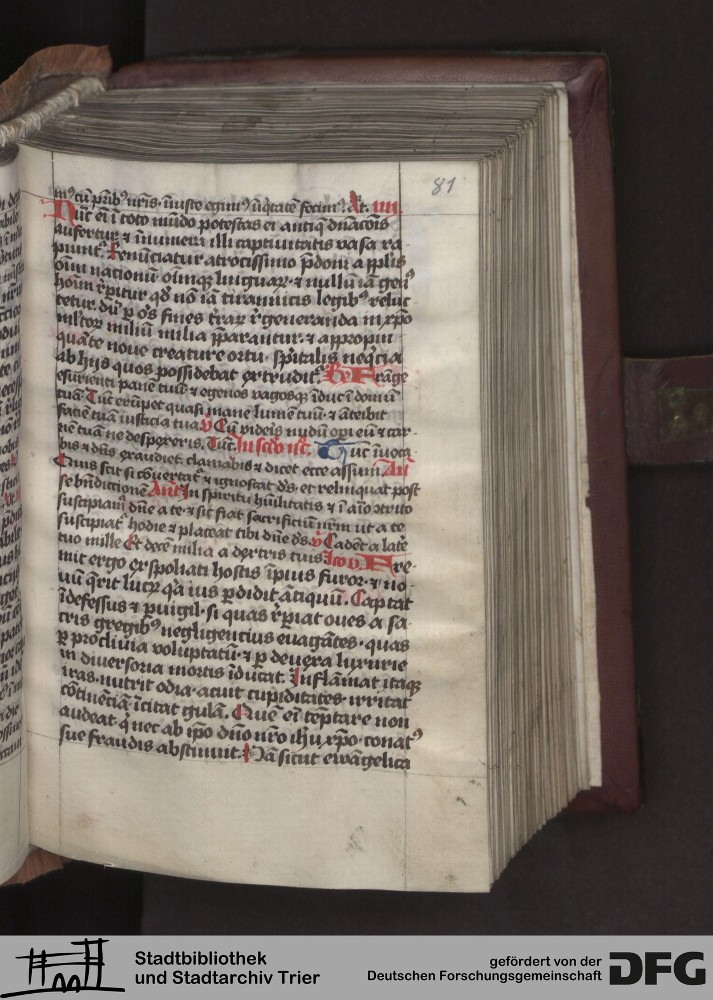 81
m⁹ cū pr̄ib⁹ nr̄is. iniuste egim⁹ iniq̇tatē fecim⁹. Lt. iiii.
Nūc ēi ī toto mūdo potestas ei antiq̄ dn̄acōis
aufertur ⁊ īnumera illi captiuitatis vasa ra-
piunt᷑. Renūciatur atrocissimo p̄doni a pp̄lis
om̄iū nationū. oīmq; linguar̄. ⁊ nullū iā gen⁹
hoīm rep̄itur qd̄ nō iā tirannicis legib⁹ reluc-
tetur. dū p oēs fines t̄rar̄ r̄generanda in xp̄o
milium milia p̄parantur. ⁊ appropin
quāte noue creature ortu. sp̄italis neq̄cia
ab hijs quos possidebat extrudit᷑. Rx Frāge
esurienti panē tuū ⁊ egenos vagosq; īduc ī domū
tuā Tūc erūpet quasi mane lumē tuū. ⁊ āteibit
faciē tuā iusticia tua v̄ Cū videis nudū opi eū ⁊ car-
nē tuā ne despexeris. Tūc. Tūc īuoca
bis ⁊ dn̄s exaudiet. clamabis ⁊ dicet ecce assum. Añ
Quis scit si cōuertat᷑ ⁊ ignoscat ds̄. et relinquat post
se bn̄dictionē Añ In spiritu hūilitatis ⁊ ī aīo cōtrito
suscipiam᷑ dn̄e a te. ⁊ sic fiat sacrificiū nr̄m ut a te
suscipiat᷑ hodie ⁊ placeat tibi dn̄e ds̄ v̄ Cadēt a late᷑
tuo mille Et decē milia a dextris tuis Fre-
mit ergo exspoliati hostis īpius furor. ⁊ no-
uū q̄rit lucr̄ q̇a ius p̄didit ātiquū. Captat
īdefessus ⁊ p̄uigil. si quas r̄p̄iat oues a sa-
cris gregib⁹ negligencius euagātes. quas
p procliuia voluptatū. ⁊ p deuexa luxurie
in diuersoria mortis īducat. Inflāmat itaq;
iras. nutrit odia. acuit cupiditates. irritat
cōtinēciā. īcitat gulā. Quē ēi tēptare non
audeat q̇ nec ab ip̄o dn̄o nr̄o ih̄u xp̄o. conat⁹
sue fraudis abstinuit. Nā sicut ewāgelica
Stadtbibliothek
und Stadtarchiv Trier
gefördert von der
Deutschen Forschungsgemeinschaft
DFG